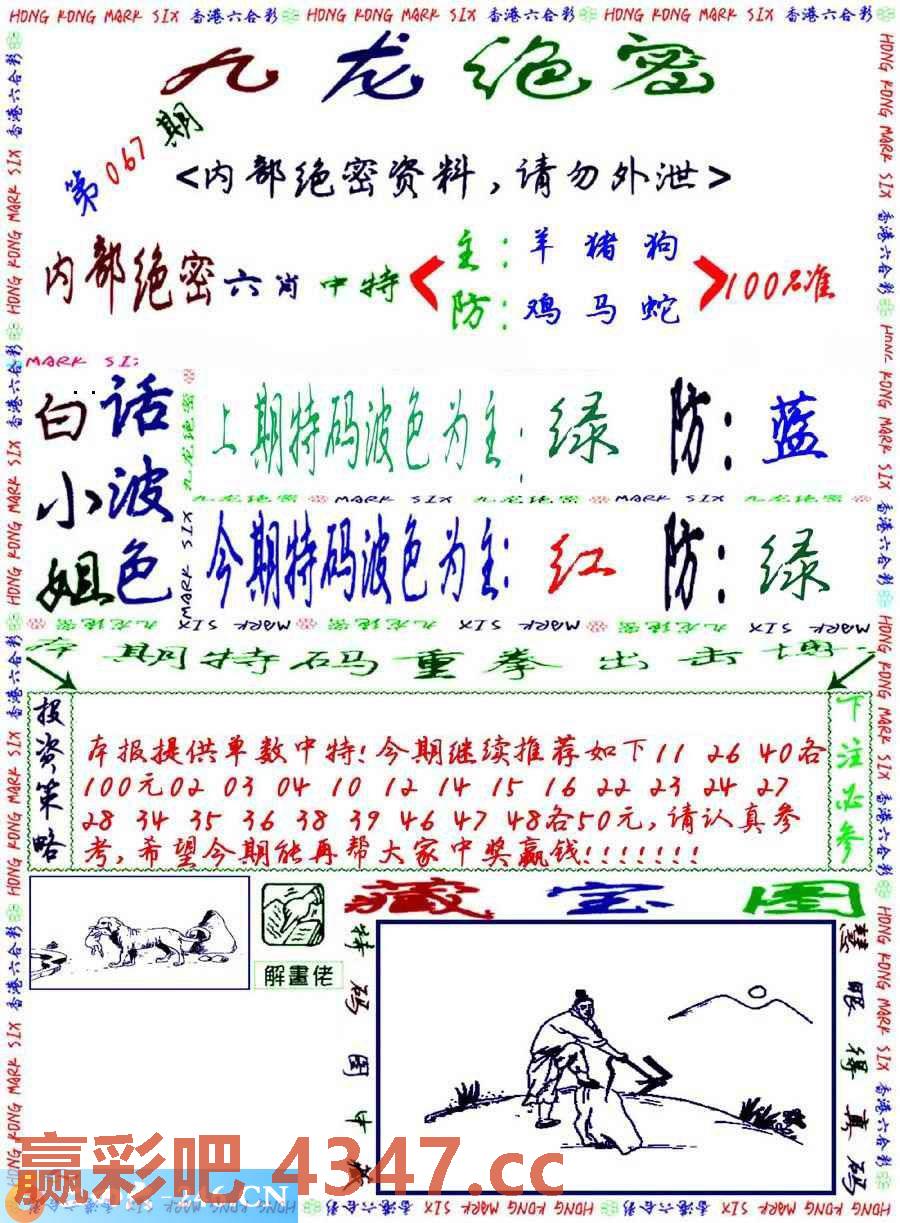 HONG KONG MARK SIX 香港六合彩 HONG KONG MARK SIX 香港六合彩 HONG KONG MARK SIX 香港六合彩
九龙绝密
第067期
<内部绝密资料,请勿外泄>
内部绝密六肖中特
主:羊猪狗
防:鸡马蛇
100%准
MARK SI:
白话
小波
姐色
九龙绝密
MARK SIX
上期特码波色为主:绿 防:蓝
九龙绝密 MARK SIX 九龙绝密 MARK SIX 九龙绝密
今期特码波色为主:红 防:绿
九龙绝密 MARK SIX 九龙绝密 MARK SIX 九龙绝密 MARK SIX
期特码重拳出击
投资策略
本报提供单数中特!今期继续推荐如下11 26 40各
100元02 03 04 10 12 14 15 16 22 23 24 27
28 34 35 36 38 39 46 47 48各50元,请认真参
考,希望今期能再帮大家中奖赢钱!!!!!!!
下注必参
藏宝图
解畫佬
特码图中
慧眼得真码
赢彩吧 4347.cc
.CN
HONG KONG MARK SIX 香港六合彩